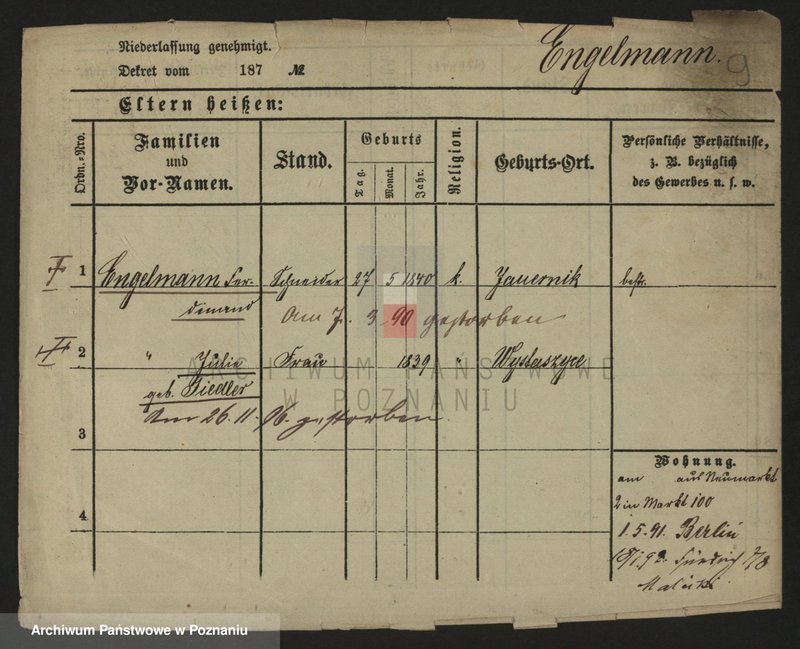 Niederlassung genehmigt.
Dekret vom 187 №
Engelmann.
9
Eltern heißen:
Ordn.-Nro.
Familien
und
Vor-Namen.
Stand.
Geburts
Tag.
Monat.
Jahr.
Religion.
Geburts-Ort.
Persönliche Verhältnisse,
z. B. bezüglich
des Gewerbes u. s. w.
1 Engelmann Fer- Schneider 27 5 1840 k. Jauernik bestr.
dinand
Am 7. 3 90 gestorben
2 " Julie Frau 1839 "
geb. Fiedler
Am 26.11.96. gestorben.
3
4
Wohnung.
am aus Neumarkt
2 in Markt 100
1.5.91. Berlin
ARCHIWUM PAŃSTWOWE
W POZNANIU
Archiwum Państwowe w Poznaniu